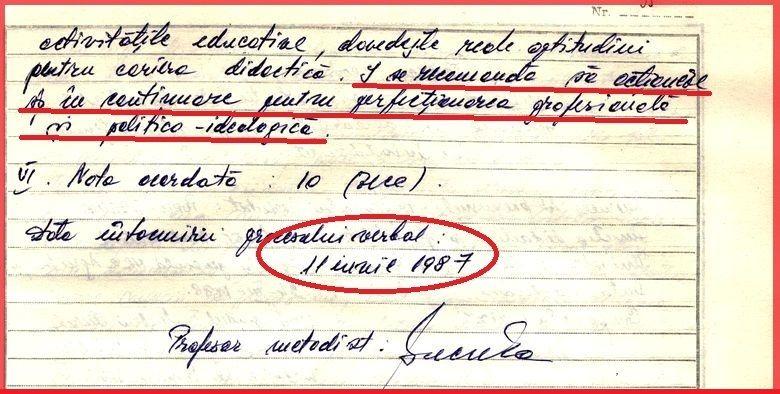 Nr.
activitățile educative, dovedește reale aptitudini
pentru cariera didactică. I se recomandă să acționeze
și în continuare pentru perfecționarea profesională
și politico-ideologică.
VI. Nota acordată : 10 (zece).
Data întocmirii procesului verbal :
11 iunie 1987
Profesor metodist :